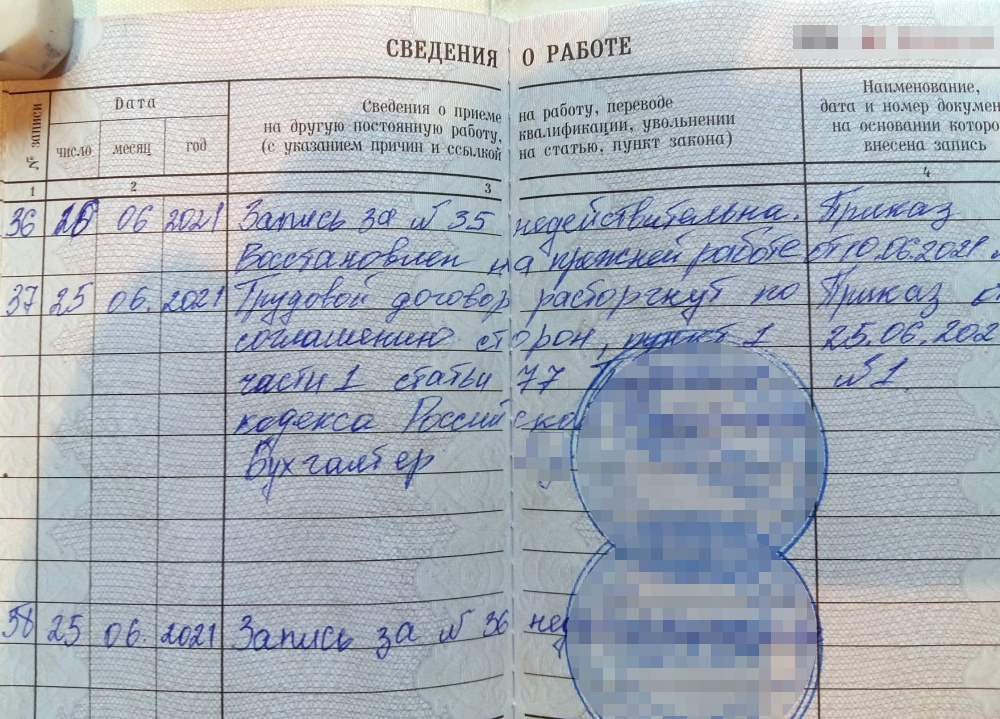 СВЕДЕНИЯ О РАБОТЕ
№ записи
Дата
число месяц год
Сведения о приеме на работу, переводе
на другую постоянную работу, квалификации, увольнении
(с указанием причин и ссылкой на статью, пункт закона)
Наименование,
дата и номер докумен
на основании которо
внесена запись
1 2 3 4
36 06 2021 Запись за № 35 недействительна. Приказ
Восстановлен на прежней работе от 10.06.2021
37 25 06. 2021 Трудовой договор расторгнут по Приказ
соглашению сторон, пункт 1 25.06.202
части 1 статьи 77 №1
кодекса Российской
Бухгалтер
38 25 06. 2021 Запись за № 36 нед